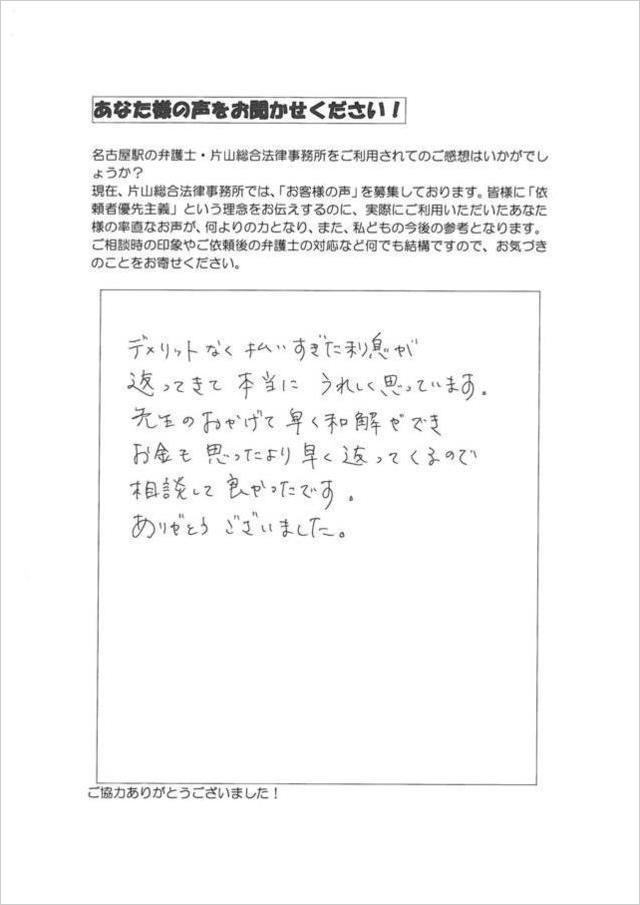 あなた様の声をお聞かせください！
名古屋駅の弁護士・片山総合法律事務所をご利用されてのご感想はいかがでし
ょうか？
現在、片山総合法律事務所では、「お客様の声」を募集しております。皆様に「依
頼者優先主義」という理念をお伝えするのに、実際にご利用いただいたあなた
様の率直なお声が、何よりの力となり、また、私どもの今後の参考となります。
ご相談時の印象やご依頼後の弁護士の対応など何でも結構ですので、お気づき
のことをお寄せください。
デメリットなく 払いすぎた利息が
返ってきて 本当に うれしく思っています。
先生のおかげで 早く和解ができ
お金も 思ったより早く返ってくるので
相談して 良かったです。
ありがとう ございました。
ご協力ありがとうございました！